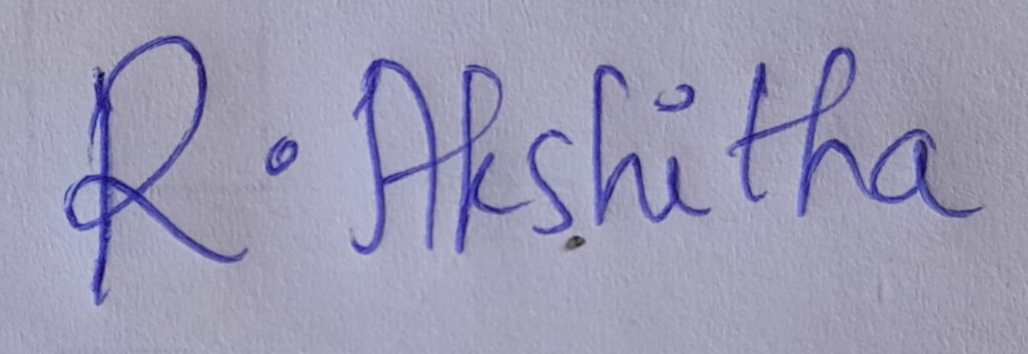 R. Akshitha